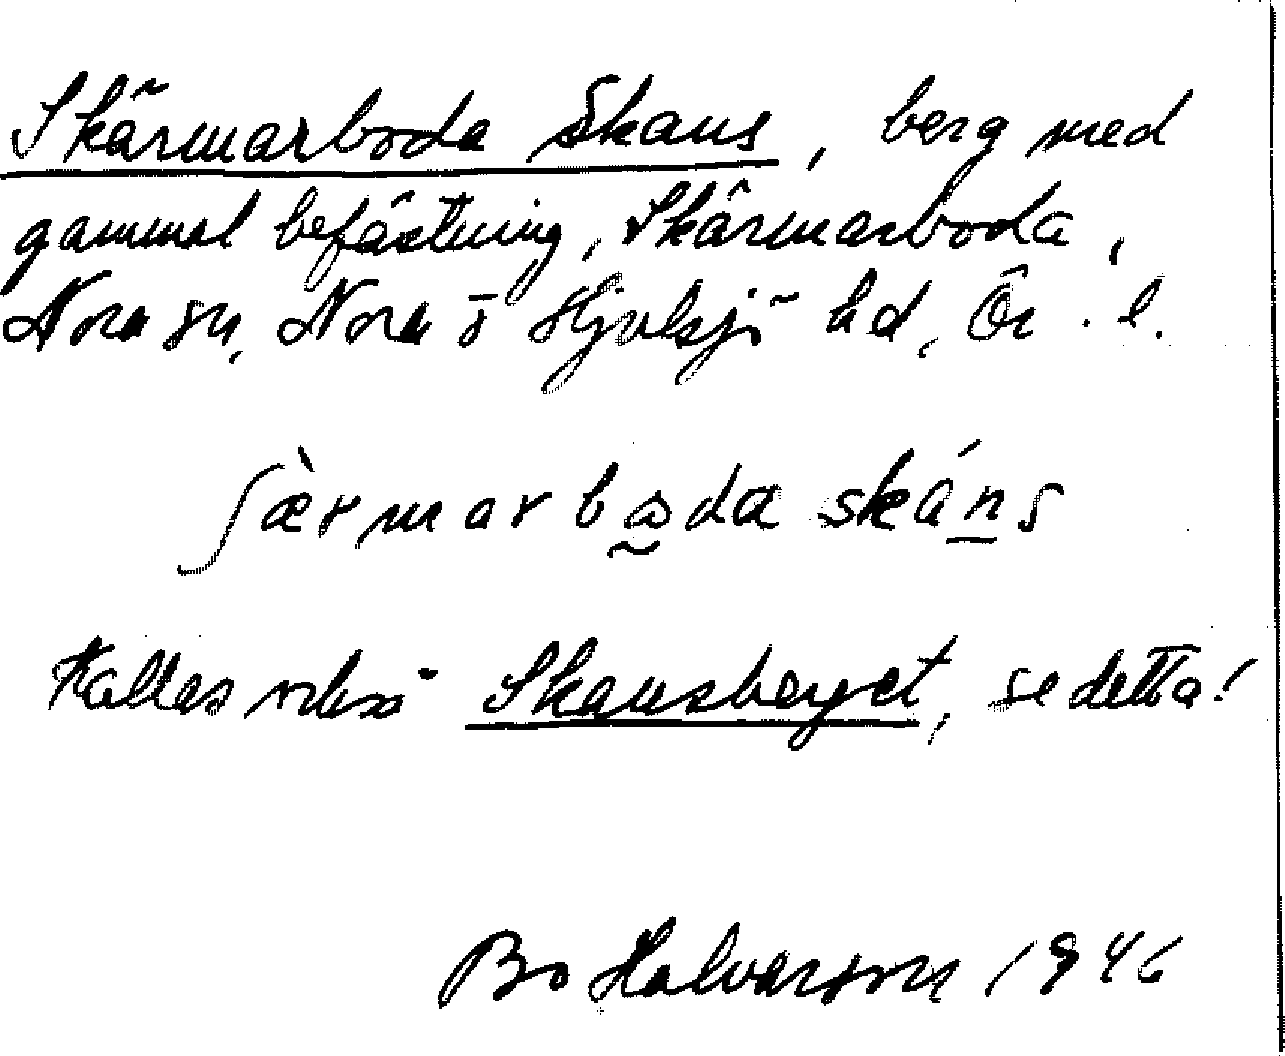 Skärmarboda Skans, berg med
gammal befästning, Skärmarboda,
Nora sn, Nora o Hjulsjö hd, Ör. l.
ʃæ̀rmarbωda skáns
Kallas också Skansberget, se detta!
Bo Halvarson 1946